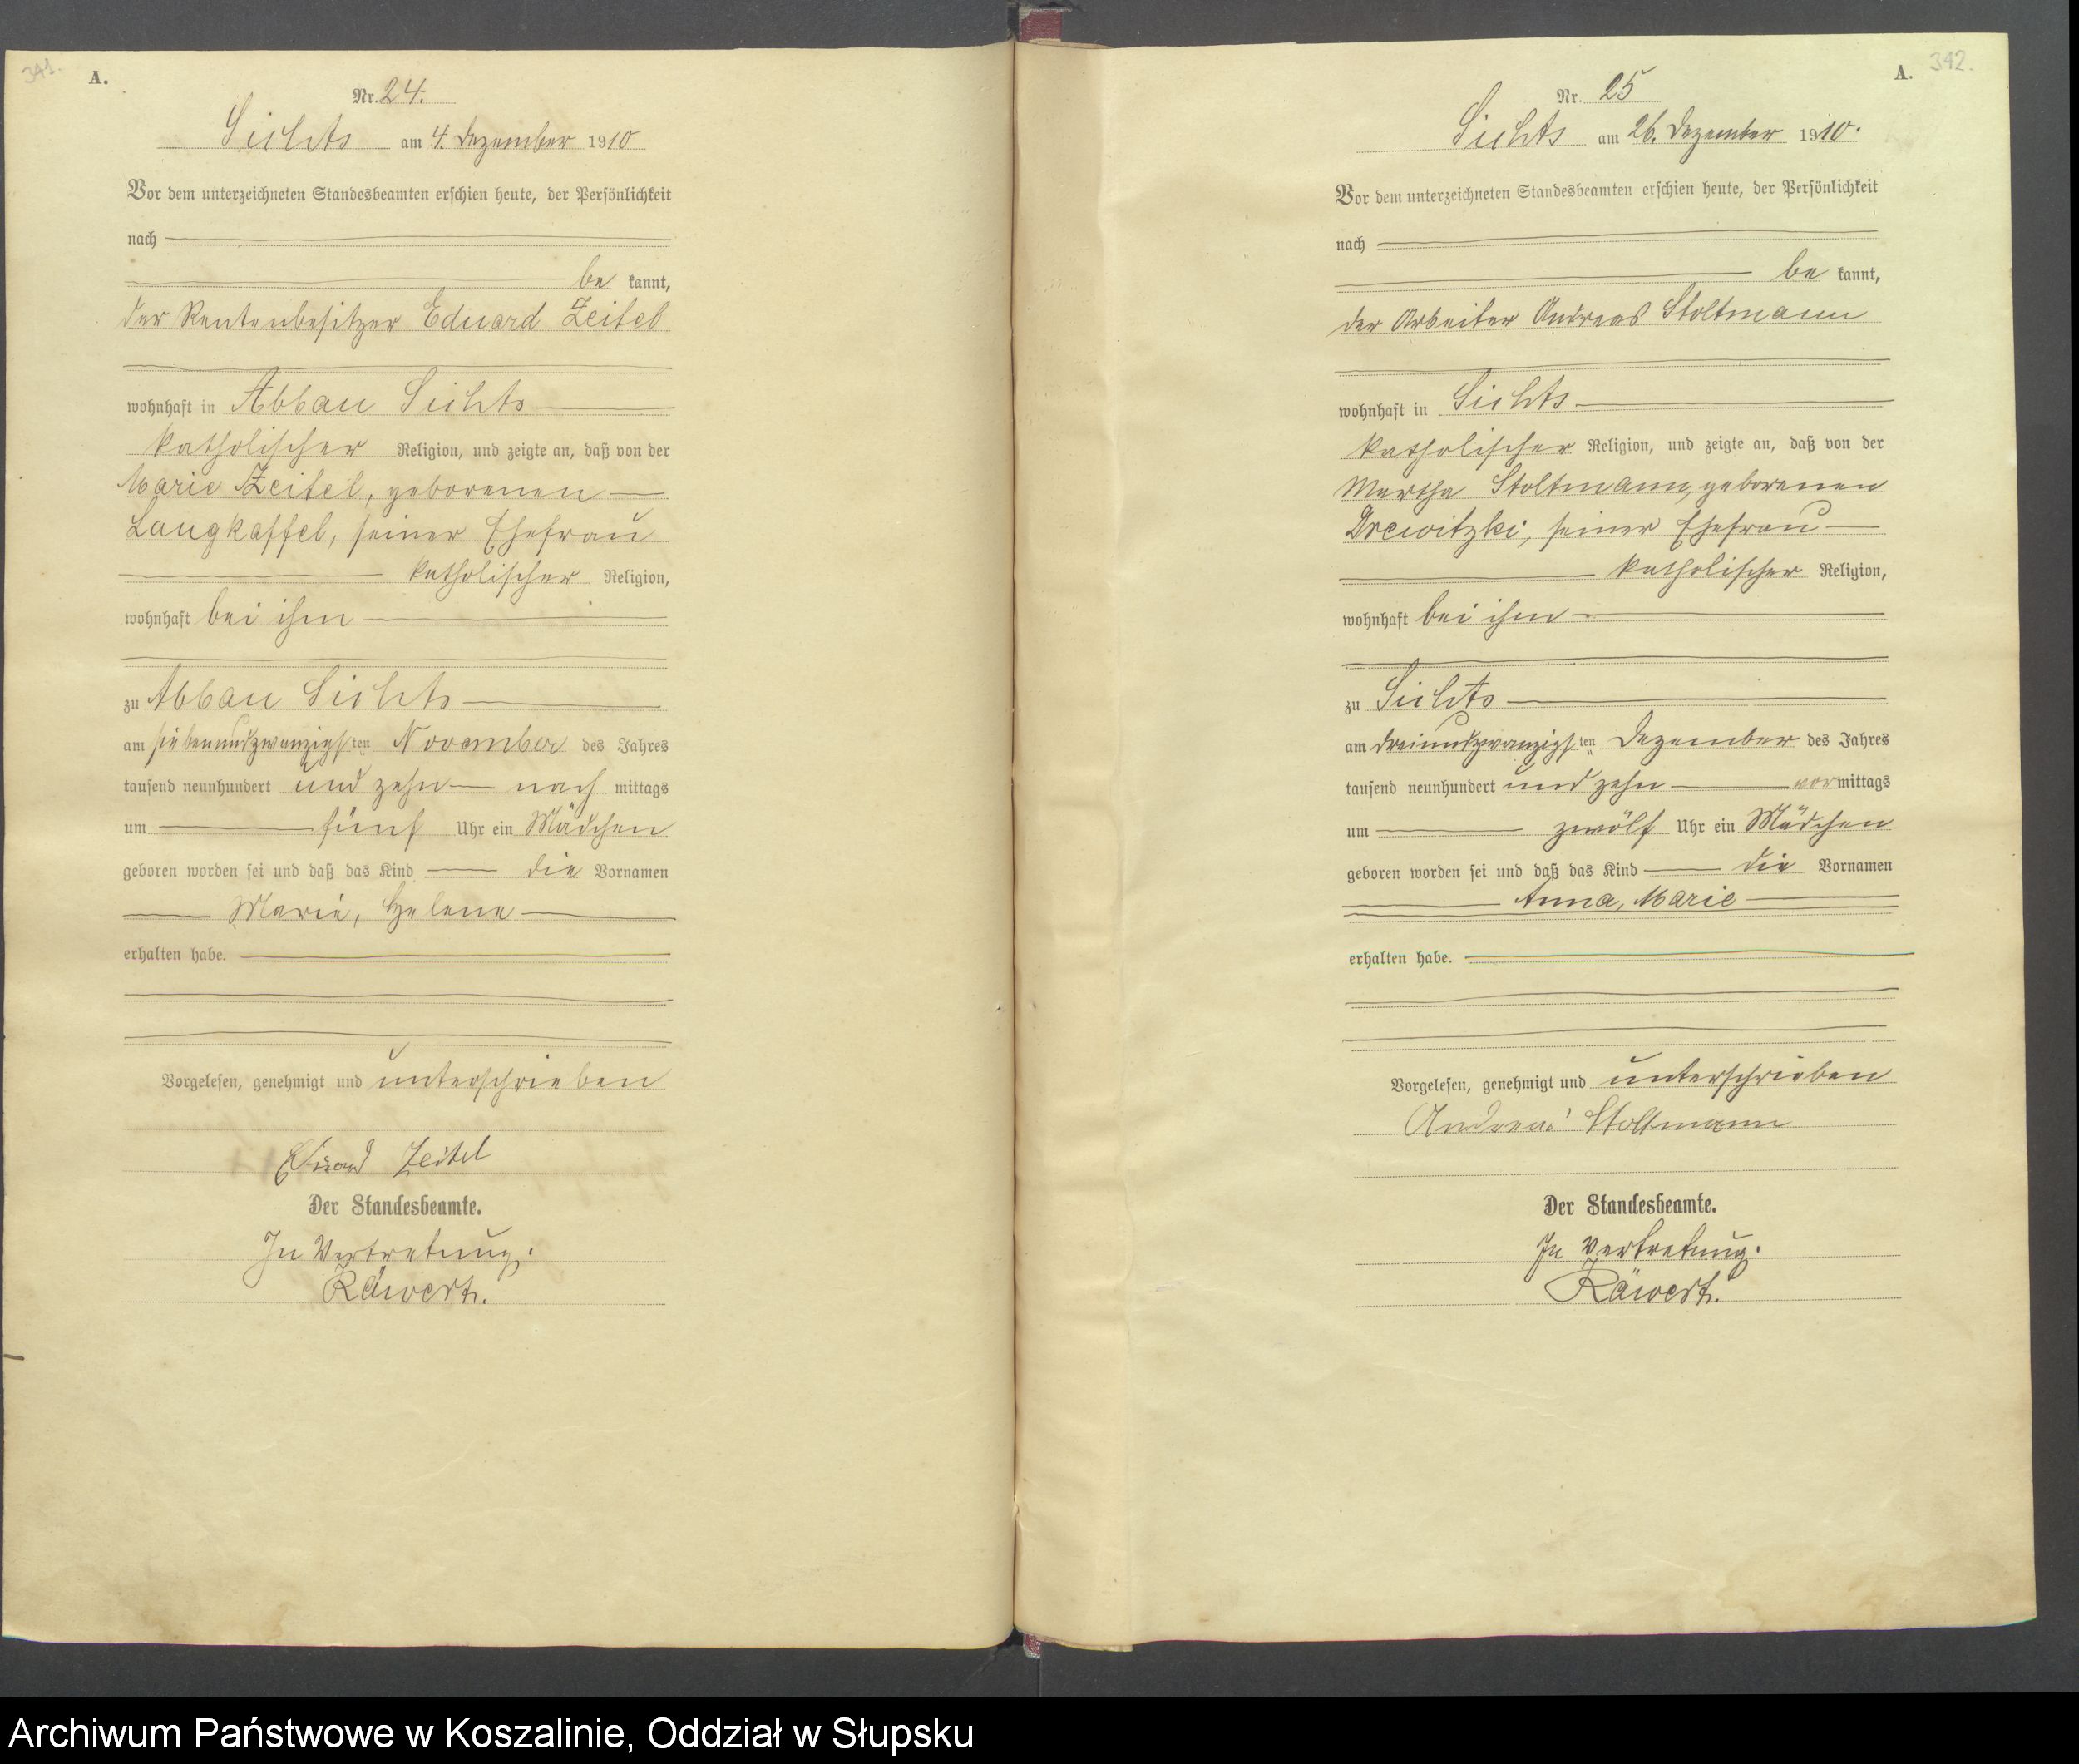 341.
A.
Nr. 24.
Lichts am 4. Dezember 1910
Vor dem unterzeichneten Standesbeamten erschien heute, der Persönlichkeit
nach
be kannt,
der Rentenbesitzer Eduard Zeitel
wohnhaft in Abbau Lichts
katholischer Religion, und zeigte an, daß von der
Marie Zeitel, geborenen
Langkaffel, seiner Ehefrau
katholischer Religion,
wohnhaft bei ihm
zu Abbau Lichts
am siebenundzwanzigsten November des Jahres
tausend neunhundert und zehn nach mittags
um fünf Uhr ein Mädchen
geboren worden sei und daß das Kind die Vornamen
Marie, Helene
erhalten habe.
Vorgelesen, genehmigt und unterschrieben
Eduard Zeitel
Der Standesbeamte.
In Vertretung:
Räwert.
342.
A.
Nr. 25
Lichts am 26. Dezember 1910.
Vor dem unterzeichneten Standesbeamten erschien heute, der Persönlichkeit
nach
be kannt,
der Arbeiter Andreas Stoltmann
wohnhaft in Lichts
katholischer Religion, und zeigte an, daß von der
Martha Stoltmann, geborenen
Drewitzki, seiner Ehefrau
katholischer Religion,
wohnhaft bei ihm
zu Lichts
am dreiundzwanzigsten Dezember des Jahres
tausend neunhundert und zehn vormittags
um zwölf Uhr ein Mädchen
geboren worden sei und daß das Kind die Vornamen
Anna, Marie
erhalten habe.
Vorgelesen, genehmigt und unterschrieben
Andreas Stoltmann
Der Standesbeamte.
In Vertretung.
Räwert.
Archiwum Państwowe w Koszalinie, Oddział w Słupsku